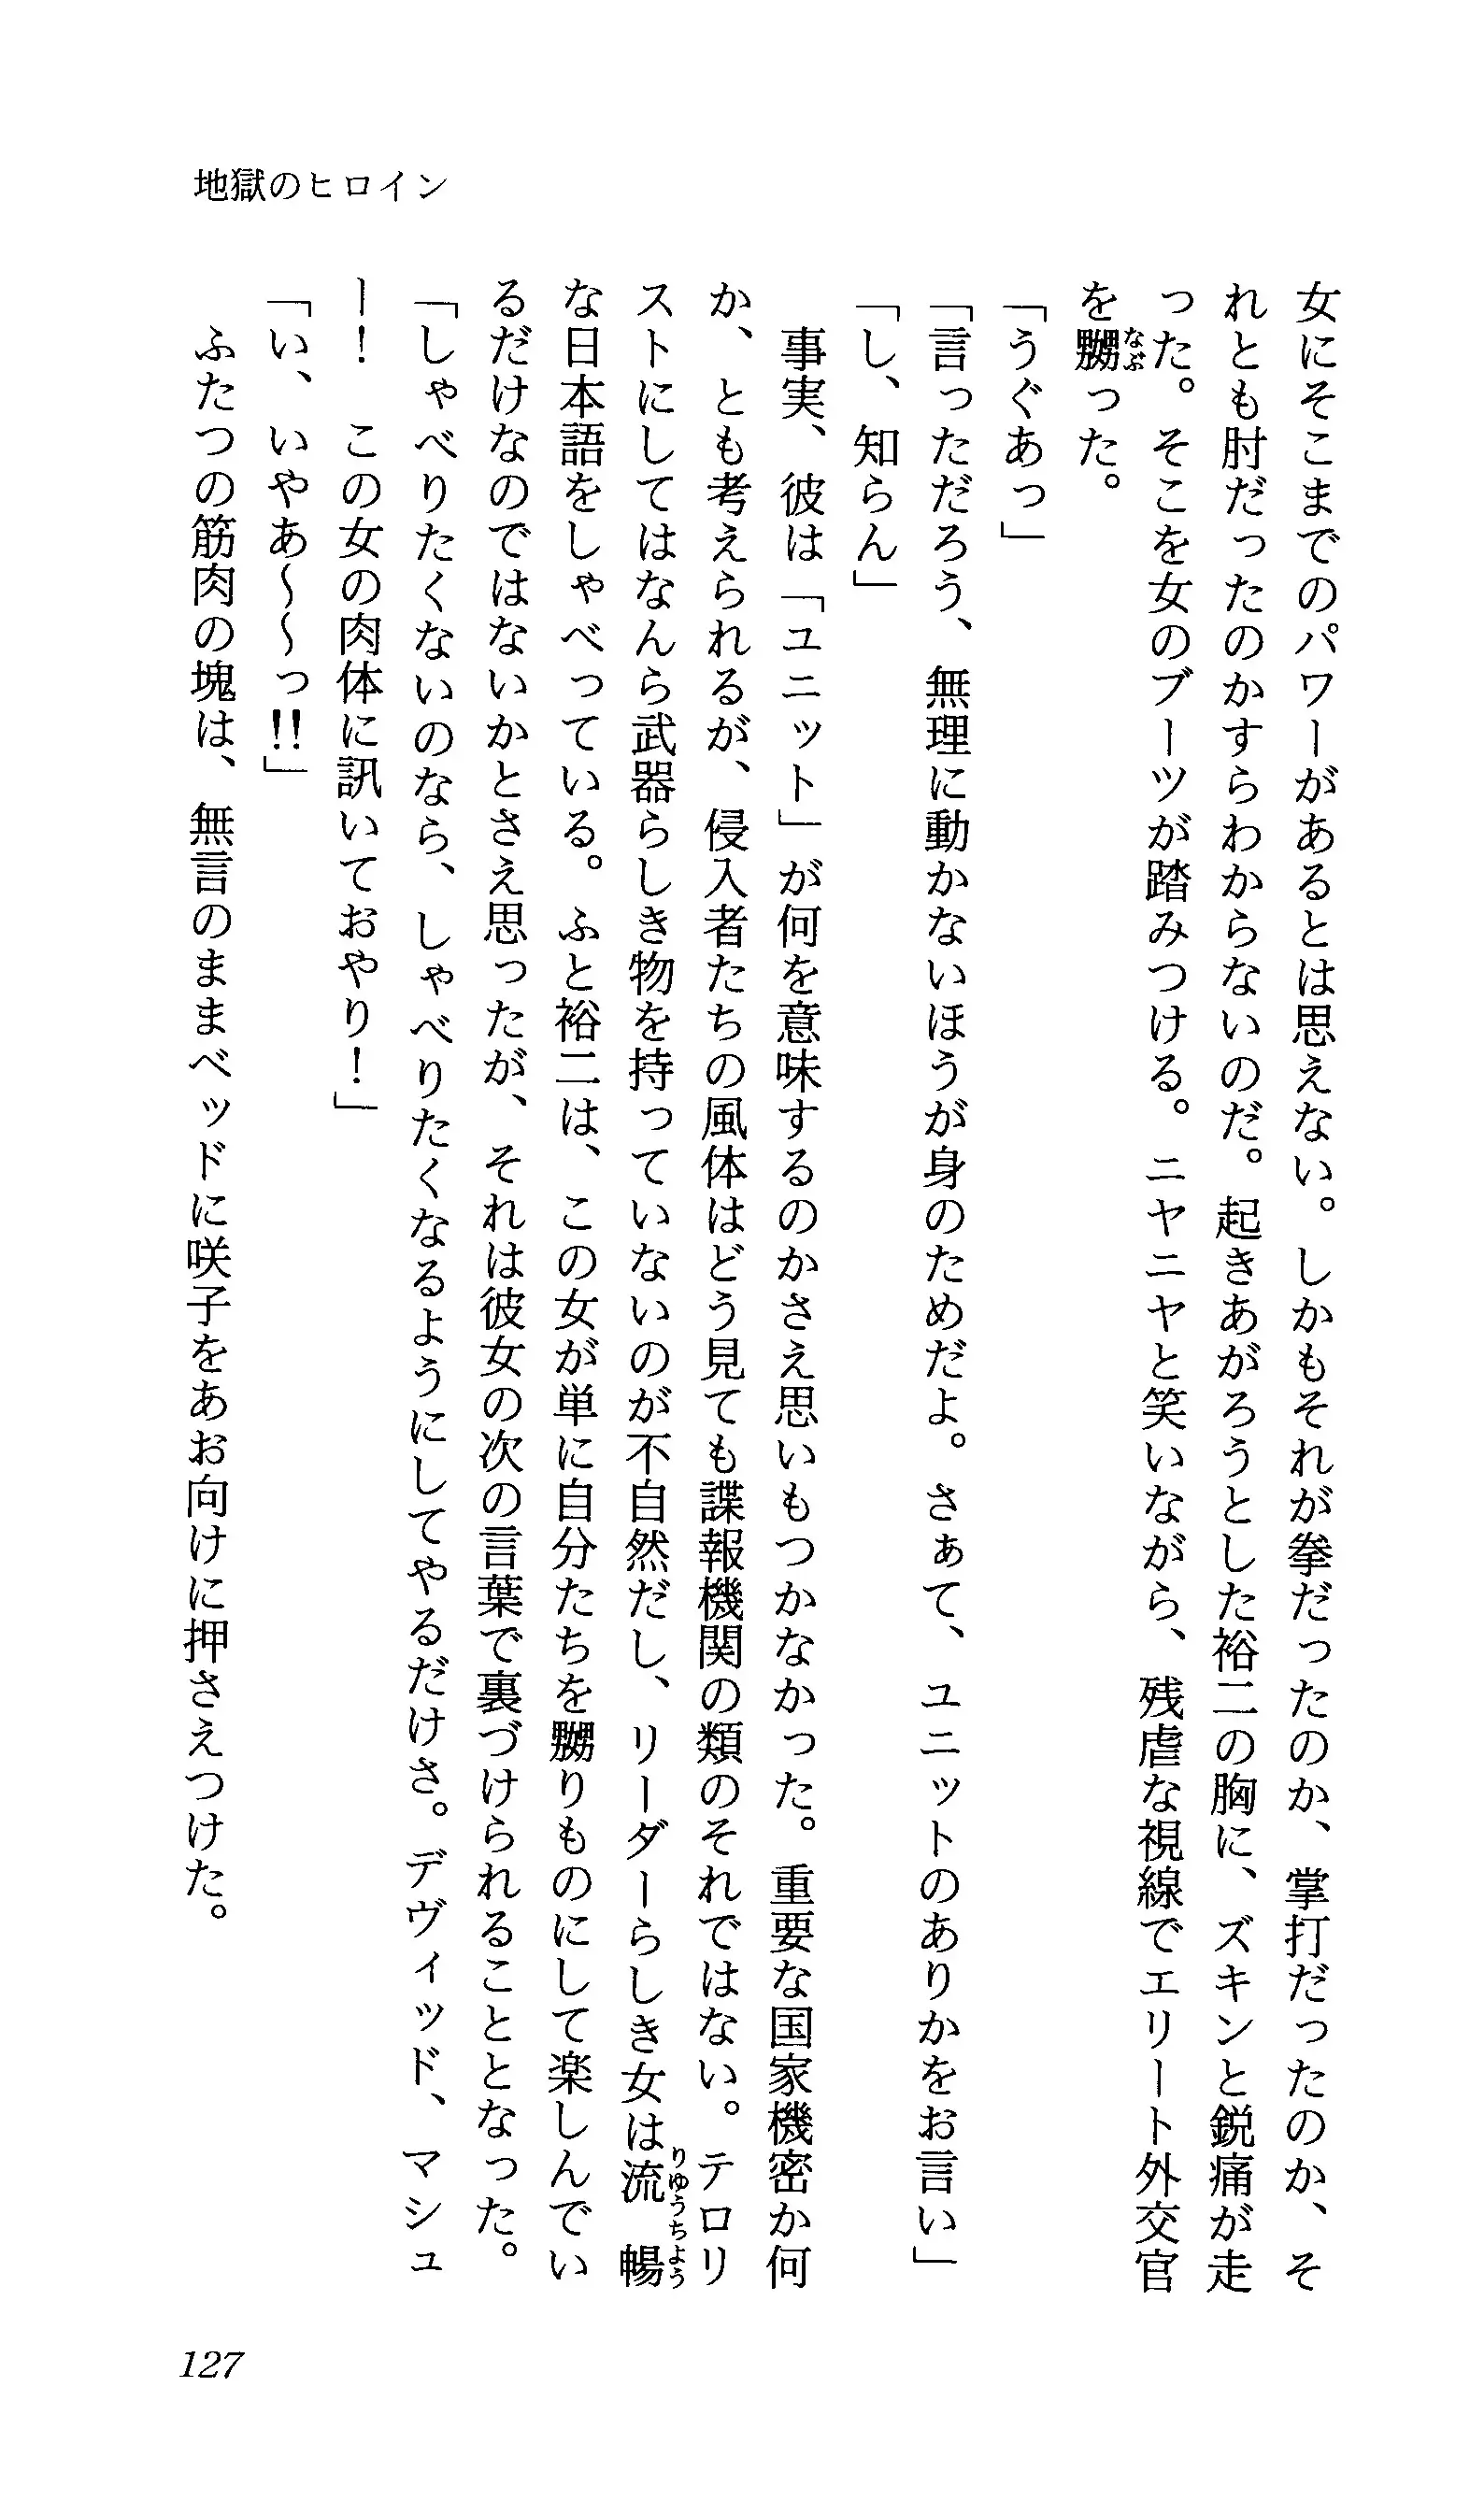 地獄のヒロイン
女にそこまでのパワーがあるとは思えない。しかもそれが拳だったのか、掌打だったのか、そ
れとも肘だったのかすらわからないのだ。起きあがろうとした裕二の胸に、ズキンと鋭痛が走
った。そこを女のブーツが踏みつける。ニヤニヤと笑いながら、残虐な視線でエリート外交官
を嬲った。
「うぐあっ」
「言っただろう、無理に動かないほうが身のためだよ。さぁて、ユニットのありかをお言い」
「し、知らん」
　事実、彼は「ユニット」が何を意味するのかさえ思いもつかなかった。重要な国家機密か何
か、とも考えられるが、侵入者たちの風体はどう見ても諜報機関の類のそれではない。テロリ
ストにしてはなんら武器らしき物を持っていないのが不自然だし、リーダーらしき女は流暢
な日本語をしゃべっている。ふと裕二は、この女が単に自分たちを嬲りものにして楽しんでい
るだけなのではないかとさえ思ったが、それは彼女の次の言葉で裏づけられることとなった。
「しゃべりたくないのなら、しゃべりたくなるようにしてやるだけさ。デヴィッド、マシュ
ー！　この女の肉体に訊いておやり！」
「い、いやあ〜〜っ!!」
　ふたつの筋肉の塊は、無言のままベッドに咲子をあお向けに押さえつけた。
127